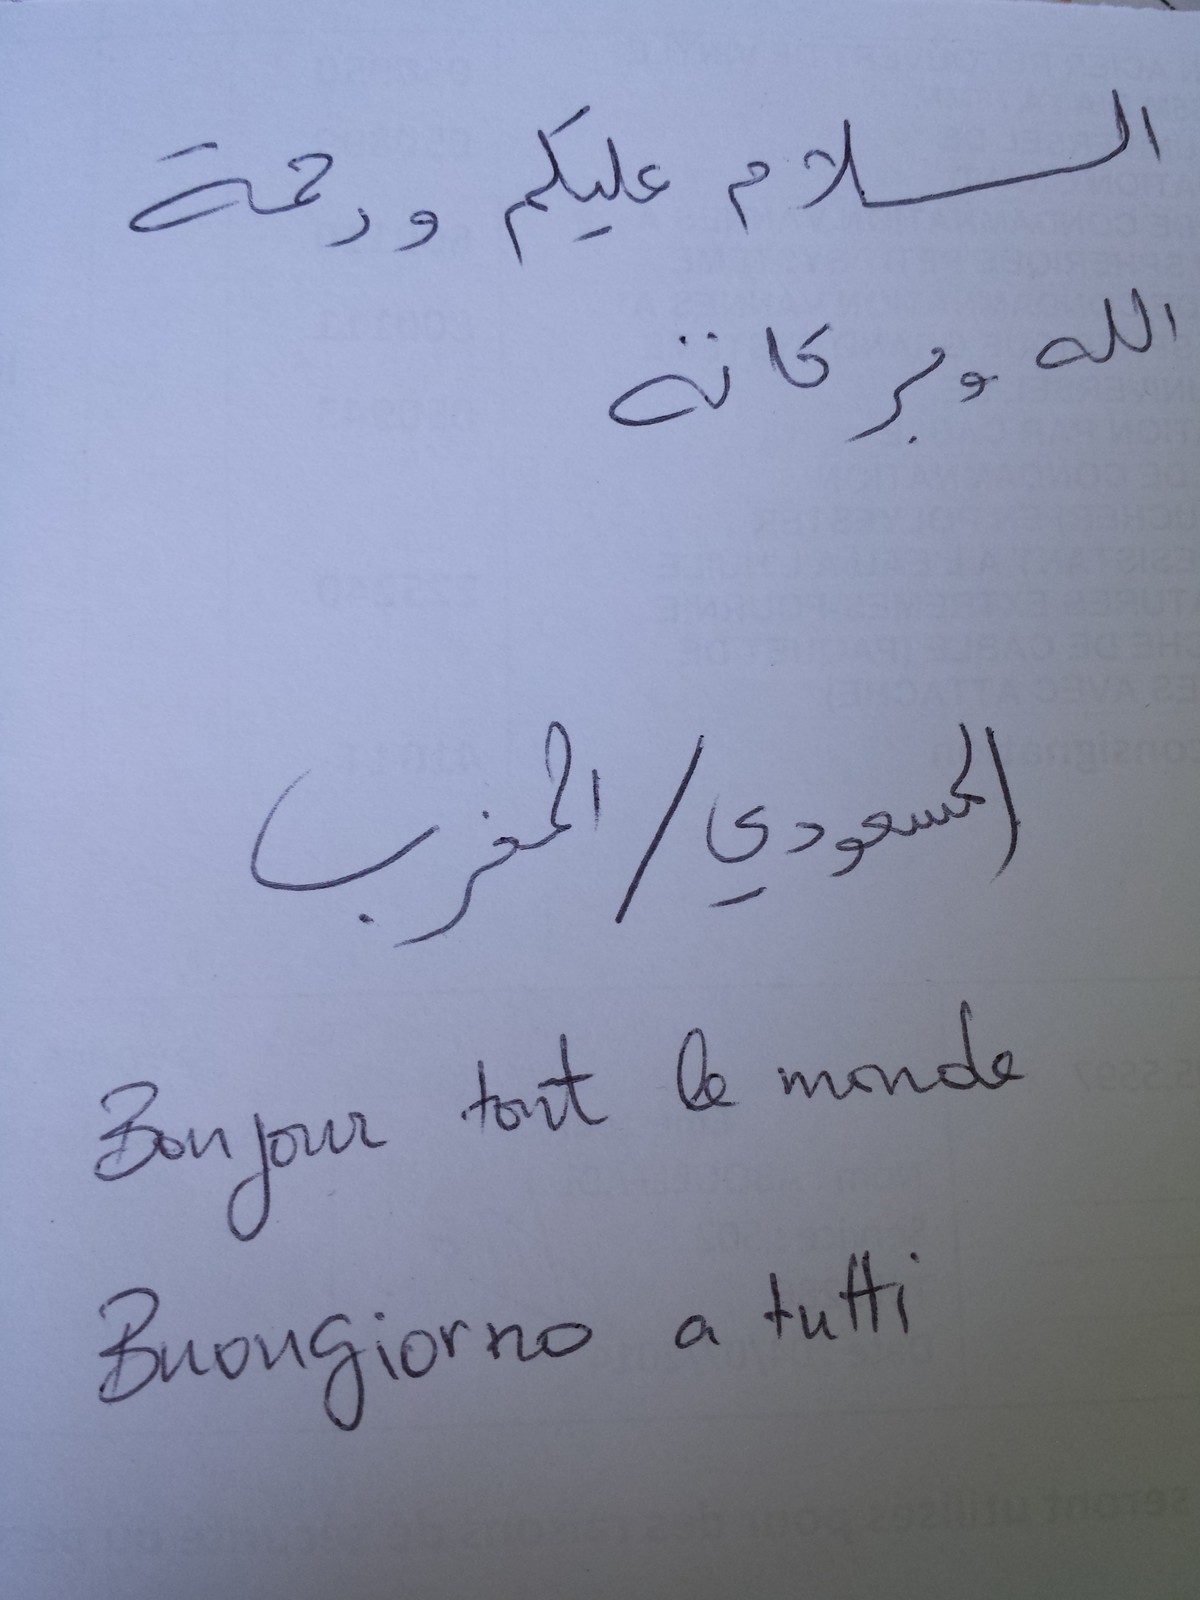 السلام عليكم ورحمة
الله وبركاته
المسعودي/المغرب
Bonjour tout le monde
Buongiorno a tutti